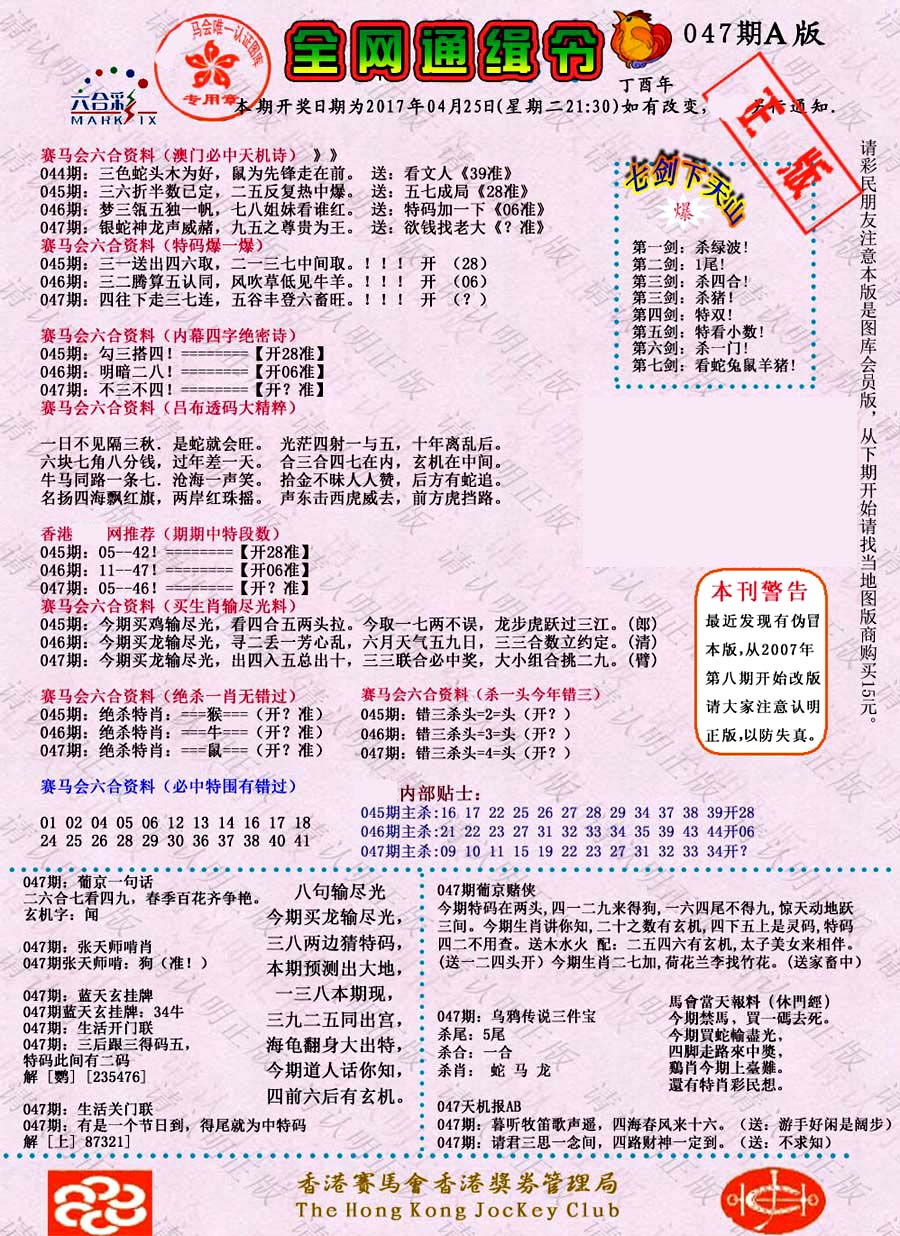 马会唯一认证图库
专用章
全网通缉令
047期A版
丁酉年
六合彩
MARK SIX
本期开奖日期为2017年04月25日(星期二21:30)如有改变，  另行通知.
正版
赛马会六合资料（澳门必中天机诗）》》
044期：三色蛇头木为好，鼠为先锋走在前。 送：看文人《39准》
045期：三六折半数已定，二五反复热中爆。 送：五七成局《28准》
046期：梦三瓴五独一帆，七八姐妹看谁红。 送：特码加一下《06准》
047期：银蛇神龙声威赫，九五之尊贵为王。 送：欲钱找老大《？准》
赛马会六合资料（特码爆一爆）
045期：三一送出四六取，二一三七中间取。！！！ 开 （28）
046期：三二腾算五认同，风吹草低见牛羊。！！！ 开 （06）
047期：四往下走三七连，五谷丰登六畜旺。！！！ 开 （？）
赛马会六合资料（内幕四字绝密诗）
045期：勾三搭四！========【开28准】
046期：明暗二八！========【开06准】
047期：不三不四！========【开？准】
赛马会六合资料（吕布透码大精粹）
一日不见隔三秋．是蛇就会旺。 光茫四射一与五，十年离乱后。
六块七角八分钱，过年差一天。 合三合四七在内，玄机在中间。
牛马同路一条七．沧海一声笑。 拾金不昧人人赞，后方有蛇追。
名扬四海飘红旗，两岸红珠摇。 声东击西虎威去，前方虎挡路。
香港  网推荐（期期中特段数）
045期：05--42！========【开28准】
046期：11--47！========【开06准】
047期：05--46！========【开？准】
赛马会六合资料（买生肖输尽光料）
045期：今期买鸡输尽光，看四合五两头拉。今取一七两不误，龙步虎跃过三江。（郎）
046期：今期买龙输尽光，寻二丢一芳心乱，六月天气五九日，三三合数立约定。（清）
047期：今期买龙输尽光，出四入五总出十，三三联合必中奖，大小组合挑二九。（臂）
赛马会六合资料（绝杀一肖无错过）
045期：绝杀特肖：===猴===（开？准）
046期：绝杀特肖：===牛===（开？准）
047期：绝杀特肖：===鼠===（开？准）
赛马会六合资料（杀一头今年错三）
045期：错三杀头=2=头（开？）
046期：错三杀头=3=头（开？）
047期：错三杀头=4=头（开？）
赛马会六合资料（必中特围有错过）
01 02 04 05 06 12 13 14 16 17 18
24 25 26 28 29 30 36 37 38 40 41
内部贴士：
045期主杀:16 17 22 25 26 27 28 29 34 37 38 39开28
046期主杀:21 22 23 27 31 32 33 34 35 39 43 44开06
047期主杀:09 10 11 15 19 22 23 27 31 32 33 34开？
七剑下天山
爆
第一剑：杀绿波！
第二剑：1尾！
第三剑：杀四合！
第三剑：杀猪！
第四剑：特双！
第五剑：特看小数！
第六剑：杀一门！
第七剑：看蛇兔鼠羊猪！
请彩民朋友注意本版是图库会员版，从下期开始请找当地图版商购买15元。
本刊警告
最近发现有伪冒
本版,从2007年
第八期开始改版
请大家注意认明
正版,以防失真。
047期：葡京一句话
二六合七看四九，春季百花齐争艳。
玄机字：闻
047期：张天师啃肖
047期张天师啃：狗（准！）
047期：蓝天玄挂牌
047期蓝天玄挂牌：34牛
047期：生活开门联
047期：三后跟三得码五，
特码此间有二码
解［鹦］[235476]
047期：生活关门联
047期：有是一个节日到，得尾就为中特码
解［上］87321]
八句输尽光
今期买龙输尽光，
三八两边猜特码，
本期预测出大地，
一三八本期现，
三九二五同出宫，
海龟翻身大出特，
今期道人话你知，
四前六后有玄机。
047期葡京赌侠
今期特码在两头,四一二九来得狗,一六四尾不得九,惊天动地跃
三间。今期生肖讲你知,二十之数有玄机,四下五上是灵码,特码
四二不用查。送木水火 配：二五四六有玄机,太子美女来相伴。
(送一二四头开）今期生肖二七加,荷花兰李找竹花。(送家畜中）
047期：乌鸦传说三件宝
杀尾：5尾
杀合：一合
杀肖： 蛇 马 龙
馬會當天報料（休門經）
今期禁馬，買一碼去死。
今期買蛇輸盡光，
四脚走路來中獎，
鷄肖今期上臺難。
還有特肖彩民想。
047天机报AB
047期：暮听牧笛歌声遥，四海春风来十六。（送：游手好闲是阔步）
047期：请君三思一念间，四路财神一定到。（送：不求知）
香港賽馬會香港獎券管理局
The Hong Kong JocKey Club